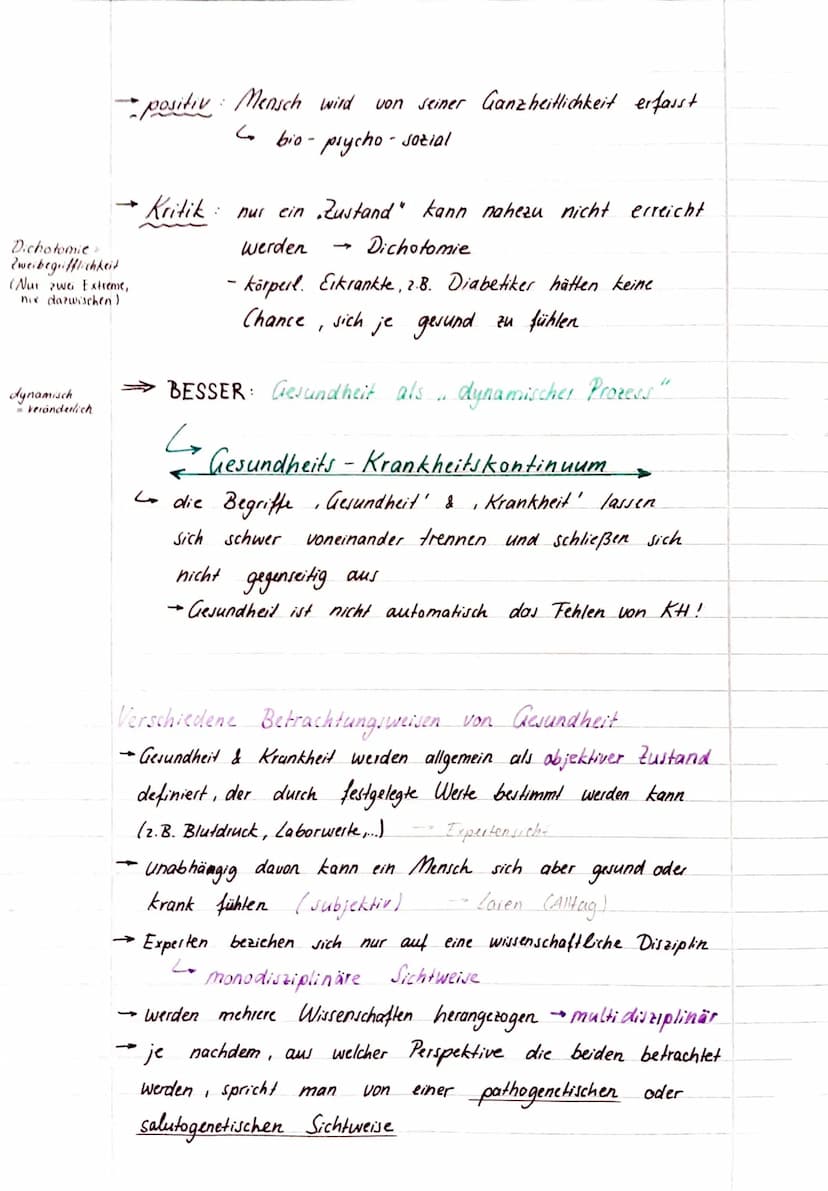 → positiv : Mensch wird von seiner Ganzheitlichkeit erfasst
↳ bio - psycho - sozial
→ Kritik : nur ein „Zustand" kann nahezu nicht erreicht
werden → Dichotomie
Dichotomie =
Zweibegrifflichkeit
(Nur zwei Extreme,
nix dazwischen)
- körperl. Erkrankte, z.B. Diabetiker hätten keine
Chance, sich je gesund zu fühlen
dynamisch
= veränderlich
⇒ BESSER: Gesundheit als „dynamischer Prozess"
↳ Gesundheits - Krankheitskontinuum
↳ die Begriffe ‚Gesundheit' & ‚Krankheit' lassen
sich schwer voneinander trennen und schließen sich
nicht gegenseitig aus
→ Gesundheit ist nicht automatisch das Fehlen von KH!
Verschiedene Betrachtungsweisen von Gesundheit
→ Gesundheit & Krankheit werden allgemein als objektiver Zustand
definiert, der durch festgelegte Werte bestimmt werden kann
(z.B. Blutdruck, Laborwerte,...) → Expertensicht
→ unabhängig davon kann ein Mensch sich aber gesund oder
krank fühlen (subjektiv) → Laien (Alltag)
→ Experten beziehen sich nur auf eine wissenschaftliche Disziplin
↳ monodisziplinäre Sichtweise
→ werden mehrere Wissenschaften herangezogen → multidisziplinär
→ je nachdem, aus welcher Perspektive die beiden betrachtet
werden, spricht man von einer pathogenetischen oder
salutogenetischen Sichtweise